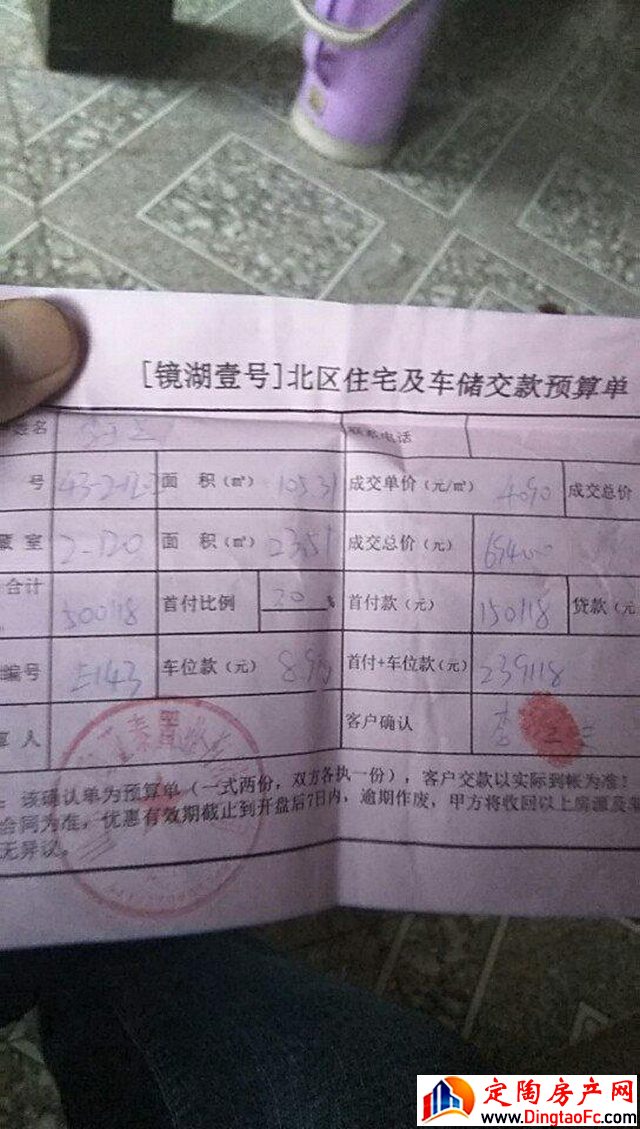 [镜湖壹号]北区住宅及车储交款预算单
姓名 联系电话
号 43-2-1202 面 积(㎡) 105.31 成交单价(元/㎡) 4090 成交总价
藏室 2-120 面 积(㎡) 23.51 成交总价(元)
合计 500118 首付比例 30 % 首付款(元) 150118 贷款(元
编号 E143 车位款(元) 8.9万 首付+车位款(元) 239118
算人 客户确认 李
:该确认单为预算单(一式两份,双方各执一份),客户交款以实际到帐为准!
合同为准,优惠有效期截止到开盘后7日内,逾期作废,甲方将收回以上房源及
无异议。
定陶房产网
www.DingtaoFc.com